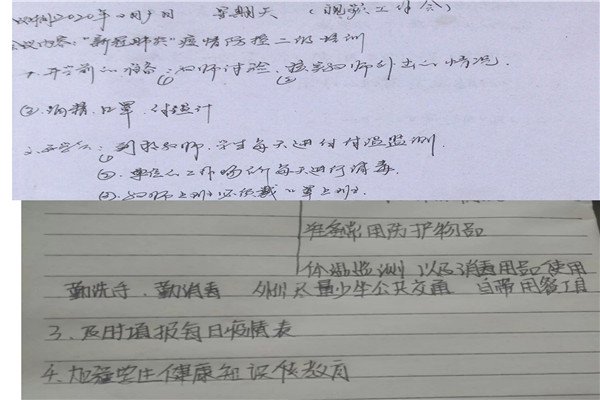 时间2020年2月9日 星期天 (视频工作会)
会议内容:"新冠肺炎"疫情防控二级培训
1. 开学前的准备:①教师讨验,②核实教师外出的情况.
③酒精.口罩.体温计
2. 开学后:①到校教师.学生每天进行体温监测.
②.单位的工作场所每天进行消毒.
③.教师上班必须戴口罩上班.
准备常用防护物品
体温监测 以及消毒用品使用
勤洗手、勤消毒 外出尽量少坐公共交通 自带用餐工具
3、及时填报每日疫情表
4、加强学生健康知识传教育